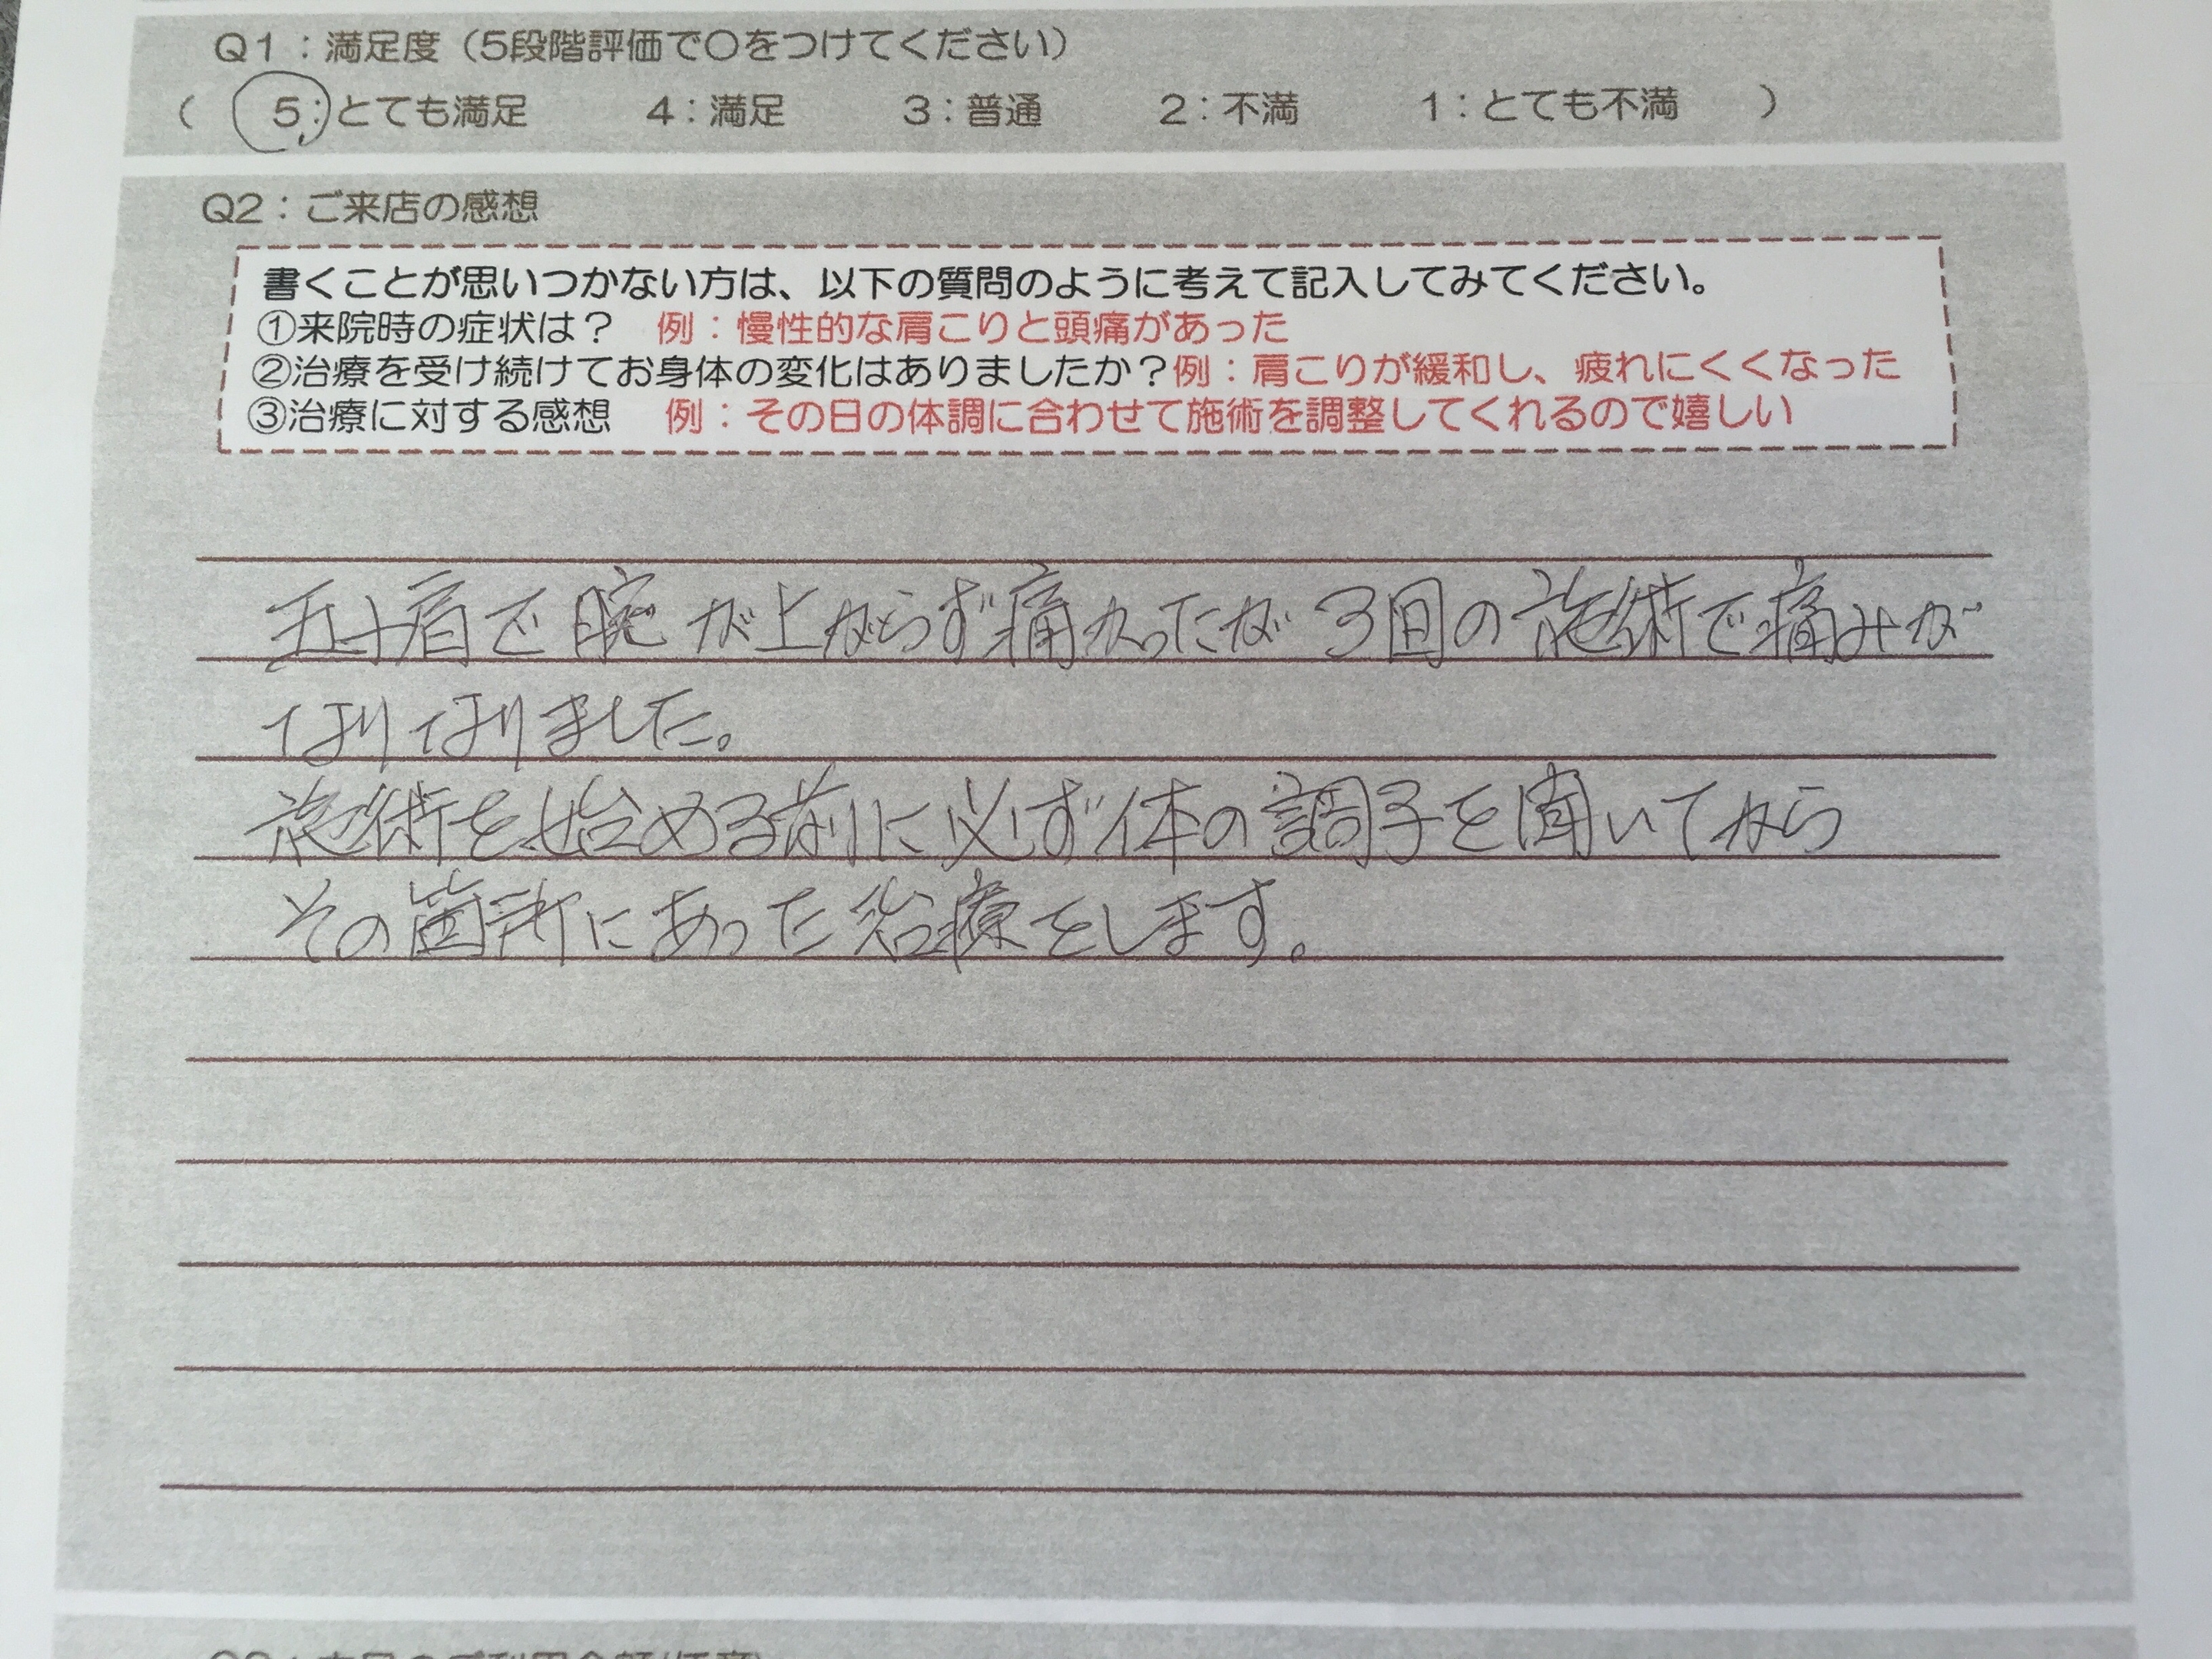 Q1：満足度（5段階評価で〇をつけてください）
（ 5：とても満足 4：満足 3：普通 2：不満 1：とても不満 ）
Q2：ご来店の感想
書くことが思いつかない方は、以下の質問のように考えて記入してみてください。
①来院時の症状は？ 例：慢性的な肩こりと頭痛があった
②治療を受け続けてお身体の変化はありましたか？例：肩こりが緩和し、疲れにくくなった
③治療に対する感想 例：その日の体調に合わせて施術を調整してくれるので嬉しい
五十肩で腕が上がらず痛かったが3回の施術で痛みが
なりなりました。
施術を始める前に必ず体の調子を聞いてから
その箇所にあった治療をします。